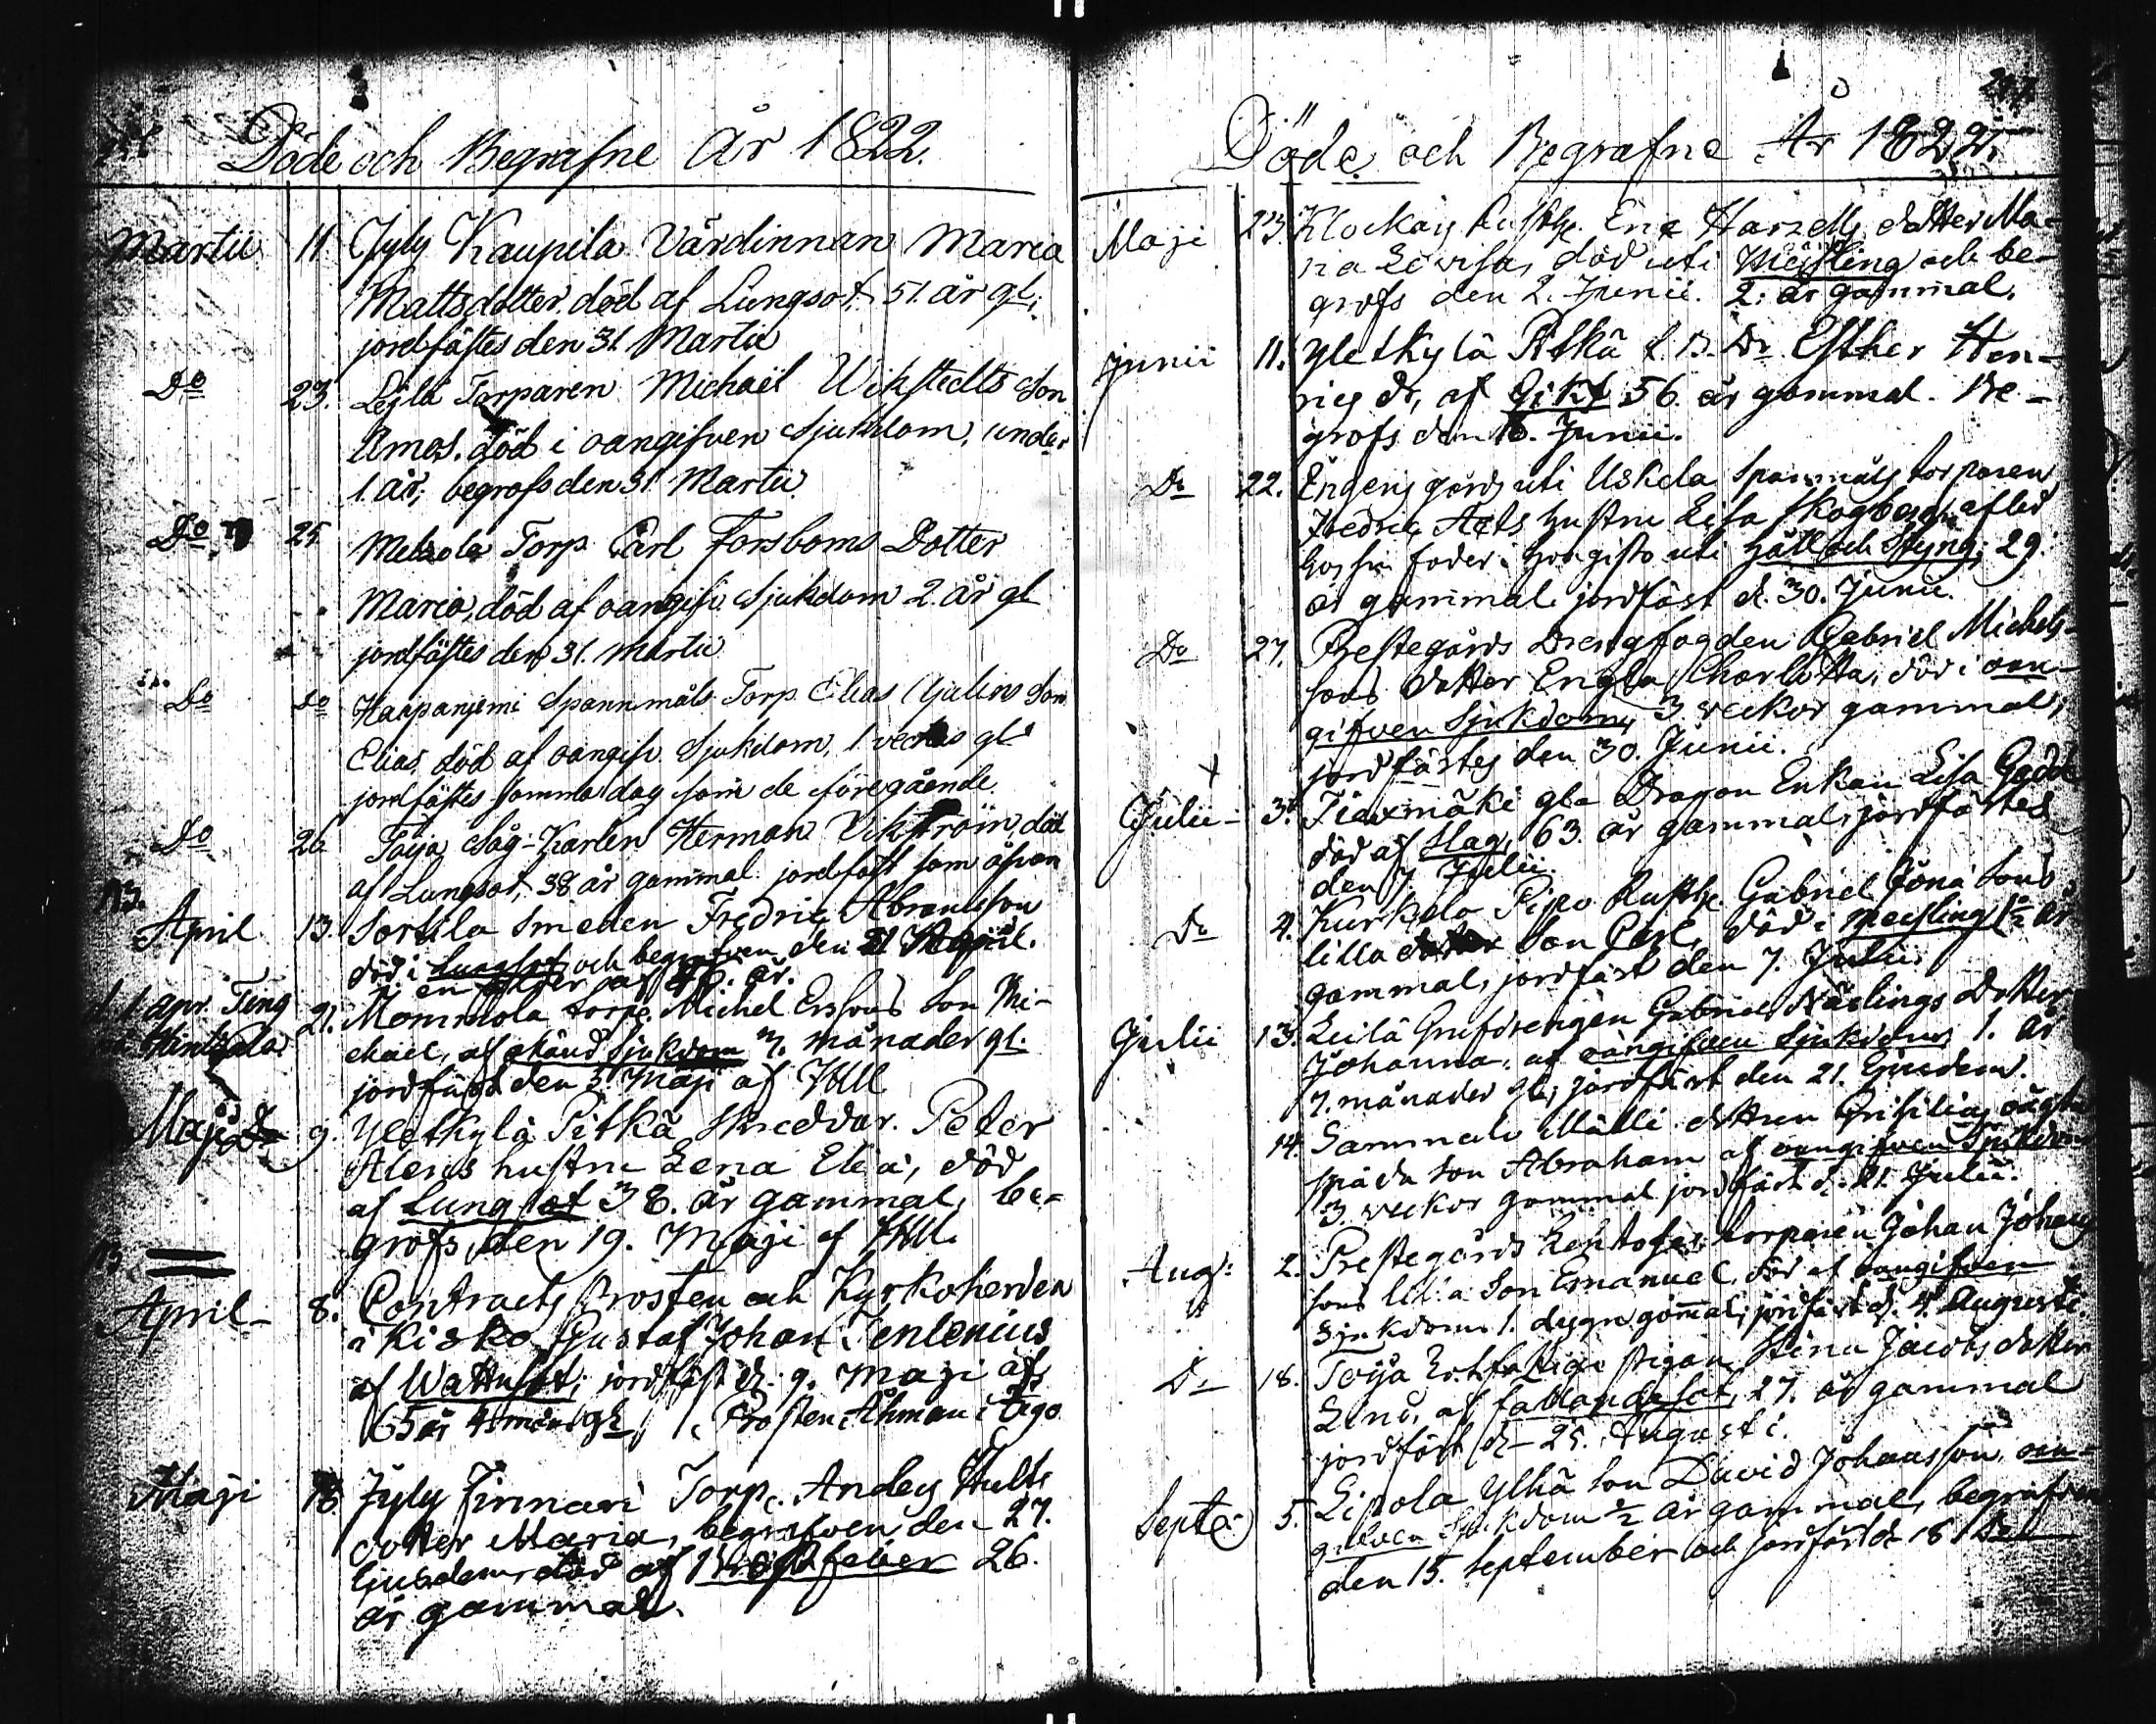 Döde och Begrafne År 1822.
Martii 11. Jyly Kaupila Värdinnan Maria
Mattsdotter död af Lungsot. 51. år gl.
jordfästes den 31. Martii
Do 23. Leilä Torparen Michael Wikstedts Son
Amos. död i oangifven Sjukdom, under
1. år; begrofs den 31 Martii.
Do 25 Torp. Carl Forsboms Dotter
Maria, död af oangifv. Sjukdom 2. år gl
jordfästes den 31. Martii
Do Do Haapaniemi Spannmåls Torp. Elias Son
Elias, död af oangifv. Sjukdom, 1 gl
jordfästes samma dag som de föregående.
Do 26 Toija Såg-Karlen Herman Vikström, död
af Lungsot, 38 år gammal. jordfäst som ofvan
April 13. Sortila Smeden Fredric Abramsson
död i Lungsot och begrafven den 21 April.
en ålder af år.
1 apr. Ting 21. Mommola torp. Michel Erssons Son Mi-
chael, af okänd Sjukdom 3. månader gl.
jordfäst den 5. Maji af
Maji Do 9. Yletkylä Pitkä Skreddar. Peter
Alens hustru Lena Elia, död
af Lungsot 38. år gammal, be-
grofs den 19. Maji af
April 8. Contracts Prosten och Kyrkoherden
i Kisko Gustaf Johan Tenlenius
af Wattusot; jordfäst d. 9. Maji af
65 år 4 mån. gl. Prosten Åhman i
Maji 18. Jyly Finnari Torp. Anders
dotter Maria, begrafven den 27.
Ejusdem, död af Bröstfeber 26.
år gammal.
Döde och Begrafne År 1822.
Maji 23. Klockars Rusth. Eric Harzells dotter Ma-
ria Lovisa, död uti Mässling och be-
grofs den 2. Junii. 2. år gammal.
Junii 11. Yletkylä Pitkä Esther Hen-
rics dr, af Gikt 56. år gammal. Be-
grofs den 16. Junii.
Do 22. gårds uti Uskela Spanmåls torparen
Fredric hustru Lisa Skogberg afled
hos sin fader uti Håll och Styng; 29.
år gammal. jordfäst d. 30. Junii.
Do 27. Prestegårds Drengfogden Gabriel Michels-
sons dotter Engla Charlotta, död i oan-
gifven Sjukdom, 3. veckor gammal,
jordfästes den 30. Junii.
Julii 3. Tiaxmäki gla Dragon Enkan Lisa
död af Slag, 63. år gammal, jordfästes
den 7. Julii.
Do 4. Kurkela Pipo Rusth. Gabriel Jona Sons
lilla Son Carl, död i Messling ½ år
gammal, jordfäst den 7. Julii
Julii 13. Leilä Grufdrengen Gabriel Näslings Dotter
Johanna, af oangifven Sjukdom 1. år
7. månader gl; jordfäst den 21. Ejusdem.
14. Sammalo Mälli
späda Son Abraham af oangifven Sjukdom
3. veckor gammal jordfäst d. 21. Julii.
Aug: 2. Prestegårds torparen Johan Johans
sons lilla Son Emanuel, död af oangifven
Sjukdom 1. dygn gammal; jordfäst d. 4. Augusti
Do 18. Toija pigan Stina Jacobs dotter
Lind, af fallandesot, 27. år gammal
jordfäst d. 25. Augusti.
Septe: 5. Lipola Ylhä Son David Johansson oan-
gifven Sjukdom ½ år gammal, begrafven
den 15. September och jordfäst d.